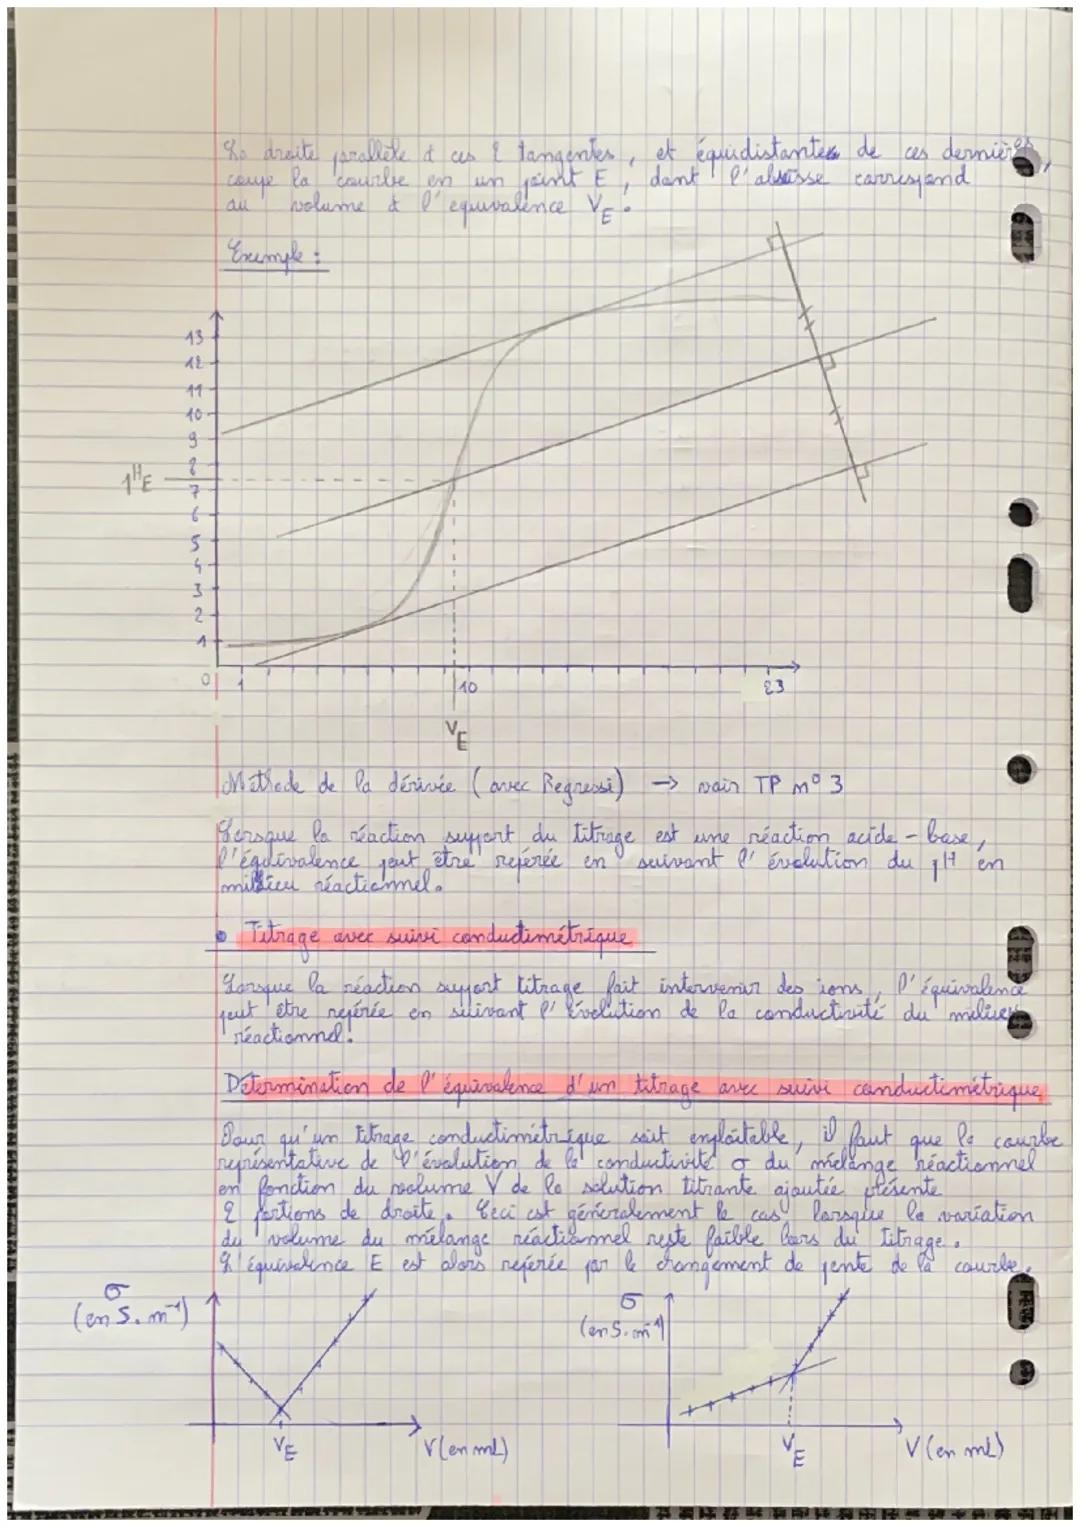 La droite parallèle à ces 2 tangentes, et équidistantes de ces dernières,
coupe la courbe en un point E, dont l'absisse correspond
au volume à l'équivalence VE.
Exemple :
13
12
11
10
9
8
pHE
7
6
5
4
3
2
1
0 1 10 23
VE
Méthode de la dérivée (avec Regressi) → voir TP n°3
Lorsque la réaction support du titrage est une réaction acide-base,
l'équivalence peut être repérée en suivant l'évolution du pH en
milieu réactionnel.
• Titrage avec suivi conductimétrique
Lorsque la réaction support titrage fait intervenir des ions, l'équivalence
peut être repérée en suivant l'évolution de la conductivité du milieu
réactionnel.
Détermination de l'équivalence d'un titrage avec suivi conductimétrique
Pour qu'un titrage conductimétrique soit exploitable, il faut que la courbe
représentative de l'évolution de la conductivité σ du mélange réactionnel
en fonction du volume V de la solution titrante ajoutée présente
2 portions de droite. Ceci est généralement le cas lorsque la variation
du volume du mélange réactionnel reste faible lors du titrage.
L'équivalence E est alors repérée par le changement de pente de la courbe.
σ
(en S.m⁻¹)
VE
V (en mL)
σ
(en S.m⁻¹)
VE
V (en mL)